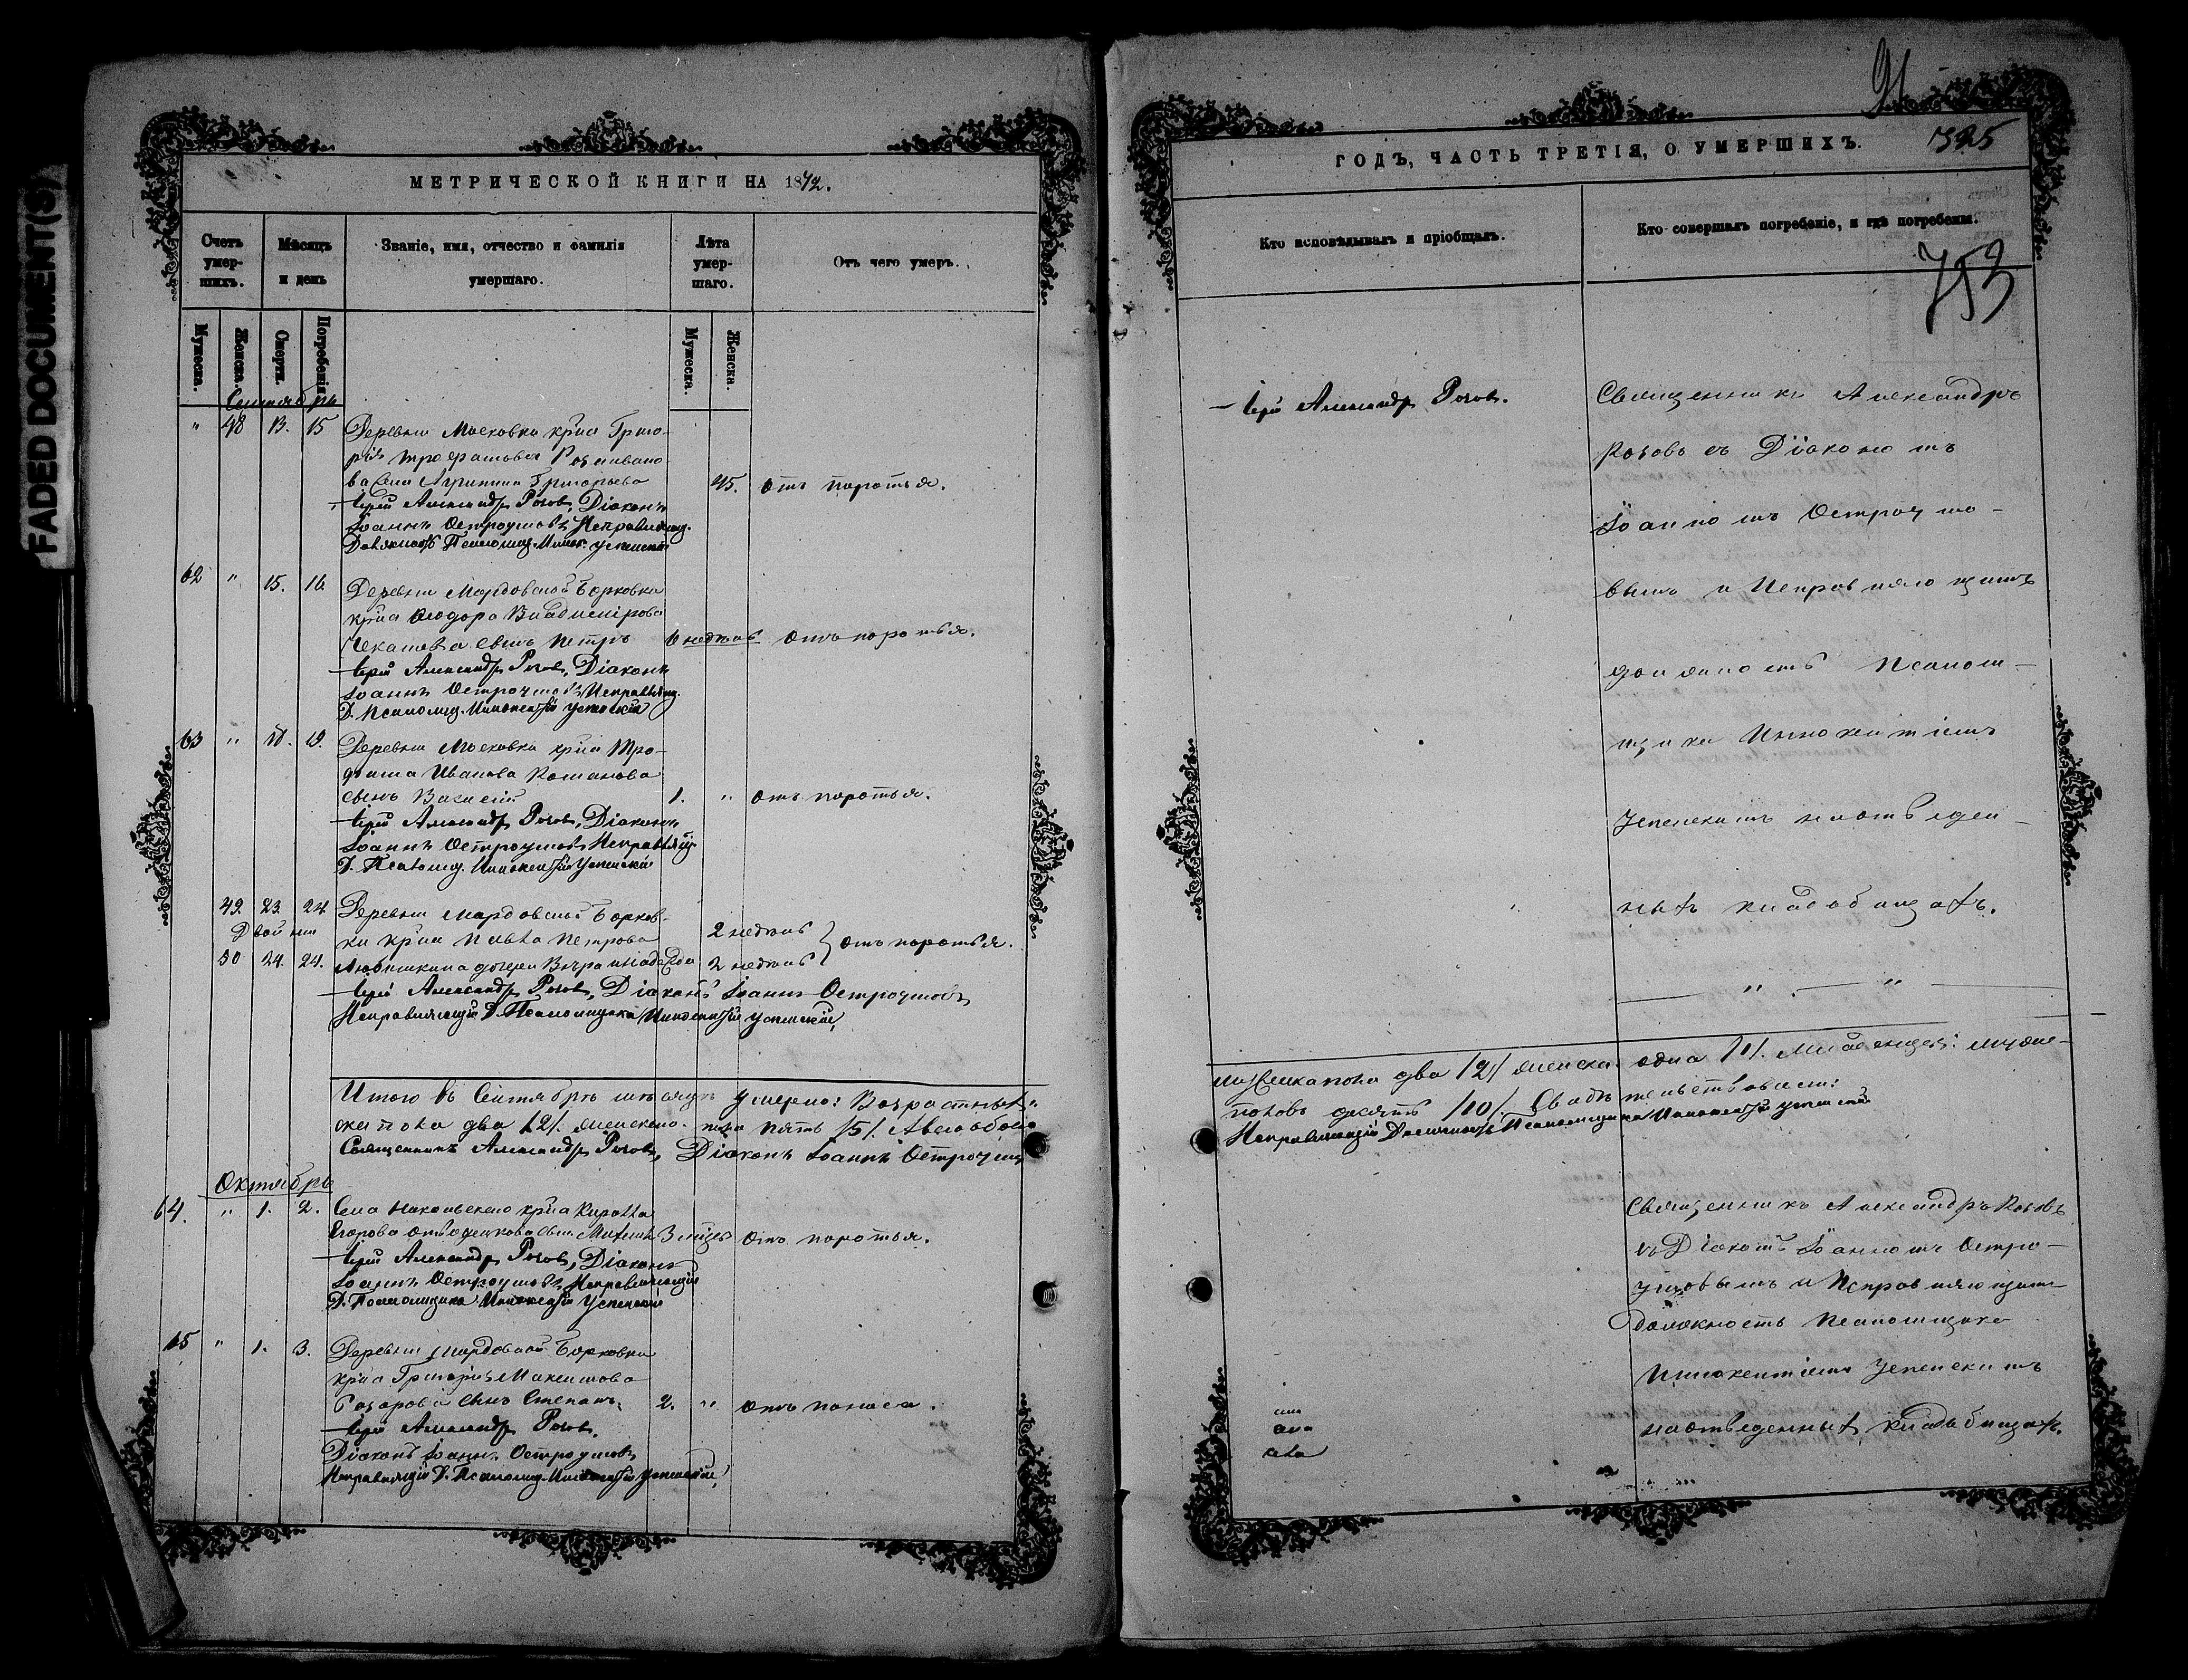 FADED DOCUMENT(S)
МЕТРИЧЕСКОЙ КНИГИ НА 1872.
Счетъ умер-шихъ.
Мѣсяцъ и день
Званіе, имя, отчество и фамилія умершаго.
Лѣта умер-шаго.
Отъ чего умеръ.
Мужеска.
Женска.
Смерти.
Погребенія
Мужеска.
Женска.
Сентябрь
" 48 13. 15 Деревни Московки кр\на Григо-
рія Трофимова
Григорьева 45. отъ поротья.
Іерей Александръ Роговъ, Діаконъ
Іоаннъ Остроумовъ, Исправляющ.
Должность Псаломщ. Иннок. Успенскій
62 " 15. 16. Деревни Мордовской Борковки
кр\на Ѳеодора Владимірова
Чекашева сынъ Петръ 6 недѣль отъ поротья.
Іерей Александръ Роговъ, Діаконъ
Іоаннъ Остроумовъ, Исправляющ.
Д. Псаломщ. Иннокентій Успенскій
63 " 19. Деревни Московки кр\на Тро-
фима Иванова Романова
сынъ Василій 1. " отъ поротья.
Іерей Александръ Роговъ, Діаконъ
Іоаннъ Остроумовъ, Исправляющ.
Д. Псаломщ. Иннокентій Успенскій
49. 23. 24 Деревни Мордовской Борков-
Двойни
ки кр\на Павла Петрова 2 недѣль
отъ поротья.
50 24. 24. Любишкина дочери Вѣра и Надежда 2 недѣль
Іерей Александръ Роговъ, Діаконъ Іоаннъ Остроумовъ
Исправляющій Д. Псаломщика Иннокентій Успенскій
Итого въ Сентябрѣ мѣсяцѣ умерло: Возрастныхъ
ска пола два /2/. женскаго пола пять /5/. А всего обоего
Священникъ Александръ Роговъ, Діаконъ Іоаннъ Остроумовъ
Октябрь
64. " 1. 2. Села Никольскаго кр\на Кирилла
Егорова сынъ Михаилъ 3 мѣсц отъ поротья.
Іерей Александръ Роговъ, Діаконъ
Іоаннъ Остроумовъ, Исправляющій
Д. Псаломщика Иннокентій Успенскій
65 " 1. 3. Деревни Мордовской Борковки
кр\на Григорія Максимова
сынъ Степанъ, 2. " отъ поноса.
Іерей Александръ Роговъ,
Діаконъ Іоаннъ Остроумовъ
Исправляющій Д. Псаломщ. Иннокентій Успенскій
91
325
ГОДЪ, ЧАСТЬ ТРЕТІЯ, О УМЕРШИХЪ.
Кто исповѣдывалъ и пріобщалъ.
Кто совершалъ погребеніе, и гдѣ погребены.
753
Іерей Александръ Роговъ.
Священникъ Александръ
Роговъ съ Діакономъ
Іоанномъ Остроумо-
вымъ и Исправляющимъ
должность Псалом-
щика Иннокентіемъ
Успенскимъ на отведен-
ныхъ кладбищахъ.
" "
мужска пола два /2/ женска одна /1/. Младенцевъ: муже-
половъ десять /10/. Свидѣтельствовали:
Исправляющій Должность Псаломщика Иннокентій Успенскій
Священникъ Александръ Роговъ
съ Діакономъ Іоанномъ Остро-
умовымъ и Исправляющимъ
должность Псаломщика
Иннокентіемъ Успенскимъ
на отведенныхъ кладбищахъ.